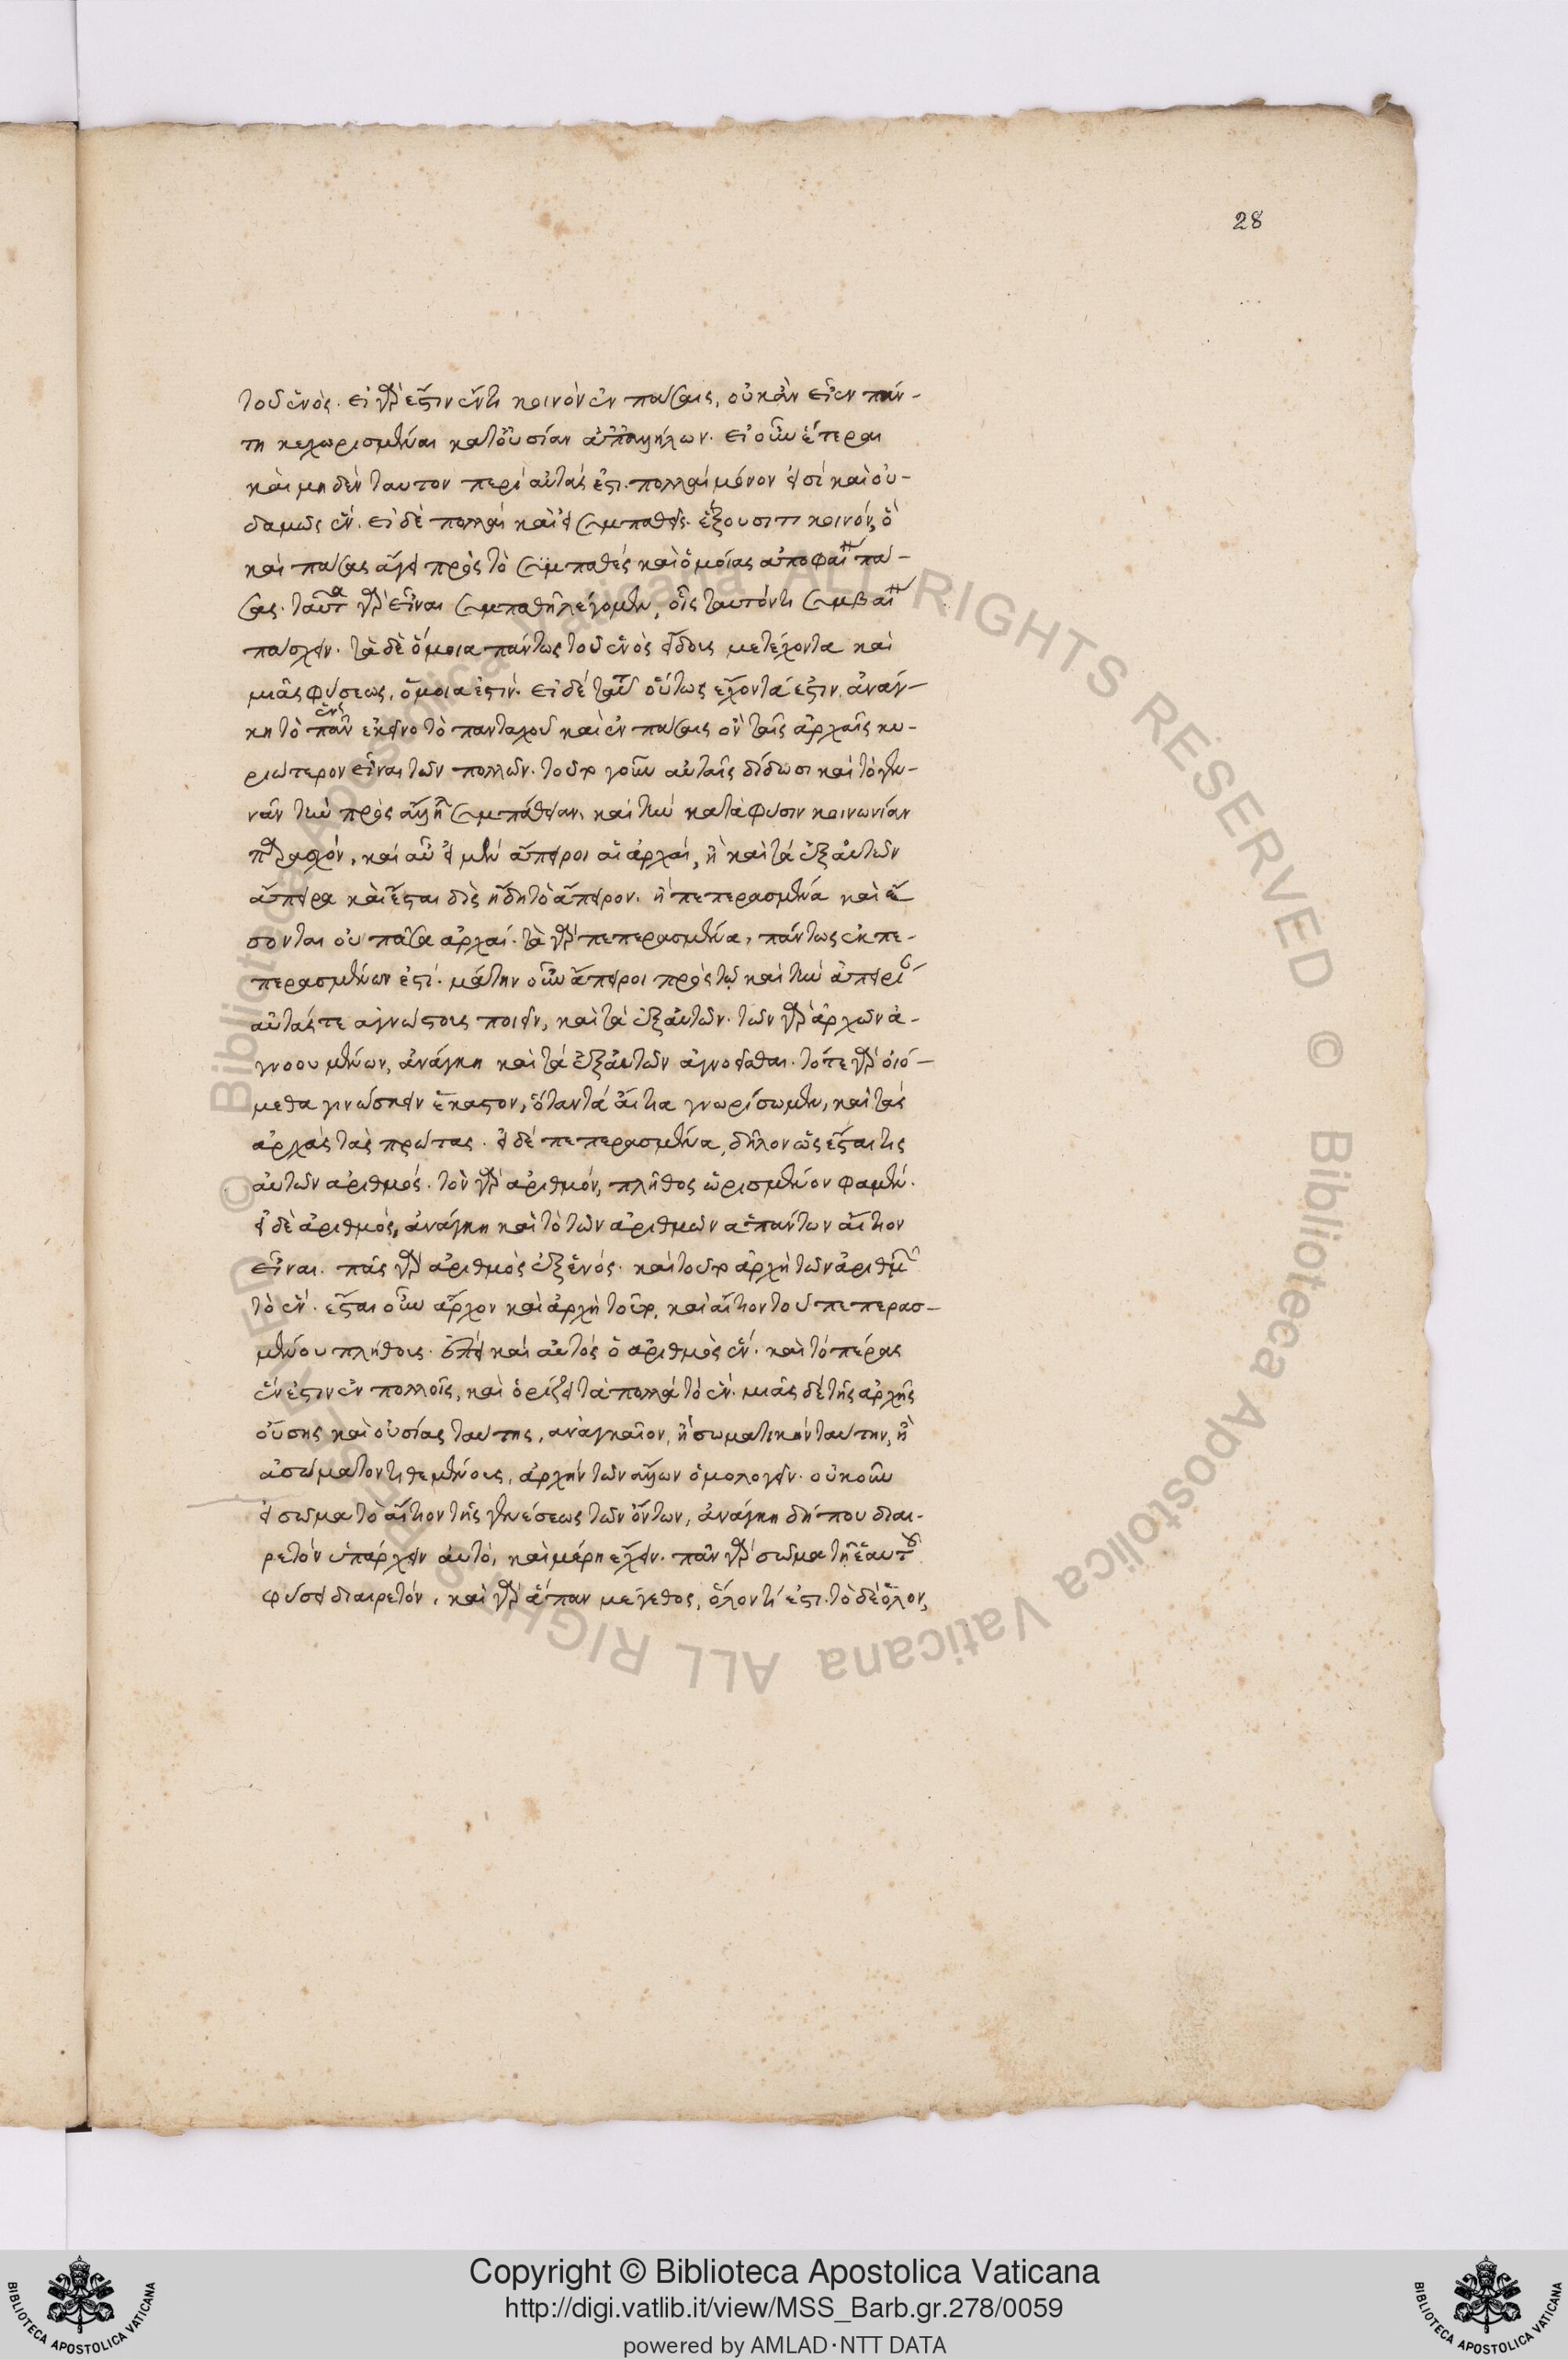 28
τοῦ ἑνὸς. εἰ γὰρ ἔστιν ἕν τι κοινὸν ἐν πάσαις, οὐκ ἂν εἶεν πάν-
τη κεχωρισμέναι κατ' οὐσίαν ἀπ' ἀλλήλων. εἰ οὖν ἕτεραι
καὶ μηδὲν ταυτὸν περὶ αὐτάς ἐστι. πολλαὶ μόνον εἰσὶ καὶ οὐ-
δαμῶς ἕν. εἰ δὲ πολλαὶ καὶ εἰ συμπαθεῖς. ἕξουσί τι κοινόν, ὃ
καὶ πάσας ἄγει πρὸς τὸ συμπαθὲς καὶ ὁμοίας ἀποφαίνει πά-
σας. ταῦτα γὰρ εἶναι συμπαθῆ λέγομεν, οἷς ταυτόν τι συμβαίνει
πάσχειν. τὰ δὲ ὅμοια πάντως τοῦ ἑνὸς εἴδους μετέχοντα καὶ
μιᾶς φύσεως, ὅμοιά ἐστιν. εἰ δὲ ταῦθ' οὕτως ἔχοντά ἐστιν, ἀνάγ-
ἓν
κη τὸ πᾶν ἐκεῖνο τὸ πανταχοῦ καὶ ἐν πάσαις ὂν ταῖς ἀρχαῖς κυ-
ριώτερον εἶναι τῶν πολλῶν. τοῦτο γοῦν αὐταῖς δίδωσι καὶ τὸ γεν-
νᾶν τὴν πρὸς ἀλλήλας συμπάθειαν, καὶ τὴν κατὰ φύσιν κοινωνίαν
παρασχόν, καὶ αὖ εἰ μὲν ἄπειροι αἱ ἀρχαὶ, ἢ καὶ τὰ ἐξ αὐτῶν
ἄπειρα καὶ ἔσται δὶς ἤδη τὸ ἄπειρον. ἢ πεπερασμένα καὶ ἔ
σονται οὐ πᾶσαι ἀρχαί. τὰ γὰρ πεπερασμένα, πάντως ἐκ πε-
περασμένων ἐστί. μάτην οὖν ἄπειροι πρὸς τῷ καὶ τὴν ἀπειρίαν
αὐτάς τε ἀγνώστους ποιεῖν, καὶ τὰ ἐξ αὐτῶν. τῶν γὰρ ἀρχῶν ἀ-
γνοουμένων, ἀνάγκη καὶ τὰ ἐξ αὐτῶν ἀγνοεῖσθαι. τότε γὰρ οἰό-
μεθα γινώσκειν ἕκαστον, ὅταν τὰ αἴτια γνωρίσωμεν, καὶ τὰς
ἀρχὰς τὰς πρώτας. εἰ δὲ πεπερασμένα, δῆλον ὡς ἔσται τις
αὐτῶν ἀριθμός. τὸν γὰρ ἀριθμόν, πλῆθος ὡρισμένον φαμέν.
εἰ δὲ ἀριθμός, ἀνάγκη καὶ τὸ τῶν ἀριθμῶν ἁπάντων αἴτιον
εἶναι. πᾶς γὰρ ἀριθμὸς ἐξ ἑνός. καὶ τοῦτο ἀρχὴ τῶν ἀριθμῶν
τὸ ἕν. ἔσται οὖν ἄρχον καὶ ἀρχὴ τοῦτο, καὶ αἴτιον τοῦ πεπερασ-
μένου πλήθους. ἐπεὶ καὶ αὐτὸς ὁ ἀριθμὸς ἕν. καὶ τὸ πέρας
ἕν ἐστιν ἐν πολλοῖς, καὶ ὁρίζει τὰ πολλὰ τὸ ἕν. μιᾶς δὲ τῆς ἀρχῆς
οὔσης καὶ οὐσίας ταύτης, ἀναγκαῖον, ἢ σωματικὴν ταύτην, ἢ
ἀσώματόν τι θεμένους, ἀρχὴν τῶν ἄλλων ὁμολογεῖν. οὐκοῦν
εἰ σῶμα τὸ αἴτιον τῆς γενέσεως τῶν ὄντων, ἀνάγκη δή που διαι-
ρετὸν ὑπάρχειν αὐτὸ, καὶ μέρη ἔχειν. πᾶν γὰρ σῶμα τῇ ἑαυτοῦ
φύσει διαιρετόν, καὶ γὰρ ἅπαν μέγεθος, ὅλον τί ἐστι. τὸ δὲ ὅλον,
Copyright © Biblioteca Apostolica Vaticana
http://digi.vatlib.it/view/MSS_Barb.gr.278/0059
powered by AMLAD·NTT DATA